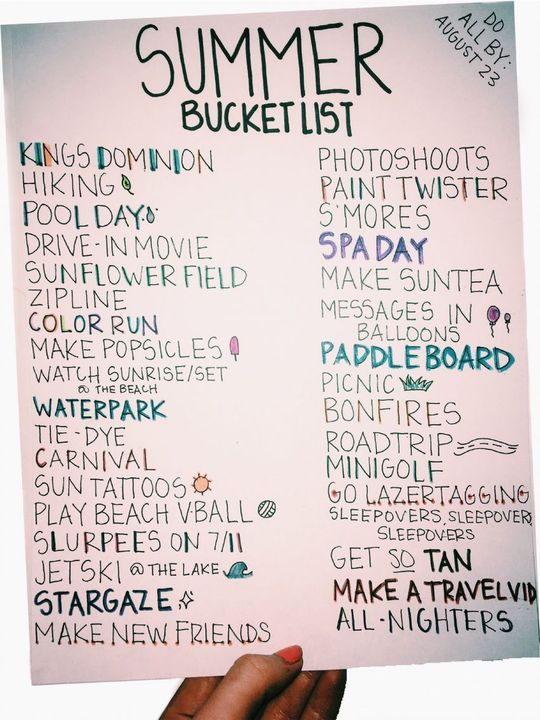 SUMMER
BUCKET LIST
DO
ALL BY:
AUGUST 23
KINGS DOMINION
HIKING
POOL DAY
DRIVE-IN MOVIE
SUNFLOWER FIELD
ZIPLINE
COLOR RUN
MAKE POPSICLES
WATCH SUNRISE/SET
@ THE BEACH
WATERPARK
TIE-DYE
CARNIVAL
SUN TATTOOS
PLAY BEACH V-BALL
SLURPEES ON 7/11
JETSKI @ THE LAKE
STARGAZE
MAKE NEW FRIENDS
PHOTOSHOOTS
PAINT TWISTER
S'MORES
SPA DAY
MAKE SUNTEA
MESSAGES IN
BALLOONS
PADDLEBOARD
PICNIC
BONFIRES
ROADTRIP
MINIGOLF
GO LAZERTAGGING
SLEEPOVERS, SLEEPOVER,
SLEEPOVERS
GET SO TAN
MAKE A TRAVEL VID
ALL-NIGHTERS